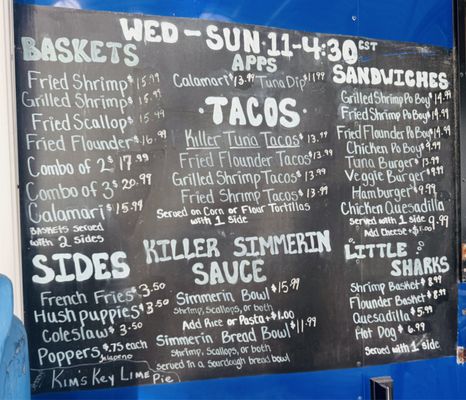 WED-SUN·11-4:30 EST
BASKETS
Fried Shrimp $15.99
Grilled Shrimp $15.99
Fried Scallop $15.99
Fried Flounder $16.99
Combo of 2 $17.99
Combo of 3 $20.99
Calamari $15.99
BASKETS SERVED
with 2 SIDES
SIDES
French Fries $3.50
Hushpuppies $3.50
Coleslaw $3.50
Poppers $.75 each
Jalapeno
KIM'S KEY LIME Pie
APPS
Calamari $13.99 Tuna Dip $11.99
·TACOS·
Killer Tuna Tacos $13.99
Fried Flounder Tacos $13.99
Grilled Shrimp Tacos $13.99
Fried Shrimp Tacos $13.99
Served on Corn or Flour Tortillas
with 1 side
KILLER SIMMERIN
SAUCE
Simmerin Bowl $15.99
Shrimp, Scallops, or both
Add Rice or Pasta +$1.00
Simmerin Bread Bowl $11.99
Shrimp, Scallops, or both
Served in a Sourdough bread bowl
SANDWICHES
Grilled Shrimp Po Boy $14.99
Fried Shrimp Po Boy $14.99
Fried Flounder Po Boy $14.99
Chicken Po Boy $9.99
Tuna Burger $13.99
Veggie Burger $9.99
Hamburger $9.99
Chicken Quesadilla
served with 1 side 9.99
Add Cheese +$1.00
LITTLE
SHARKS
Shrimp Basket $8.99
Flounder Basket $8.99
Quesadilla $5.99
Hot Dog $6.99
Served with 1 side